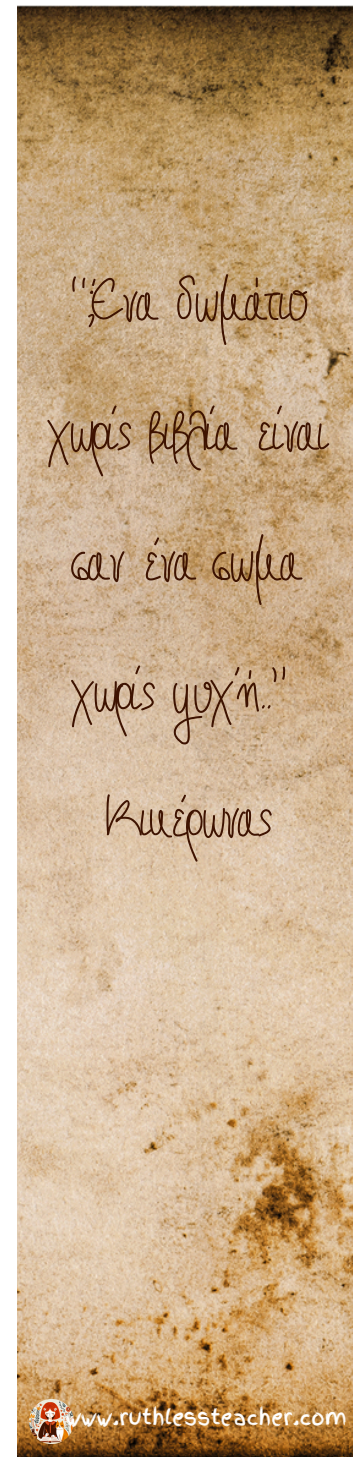 "Ένα δωμάτιο
χωρίς βιβλία είναι
σαν ένα σώμα
χωρίς ψυχή.."
Κικέρωνας
www.ruthlessteacher.com